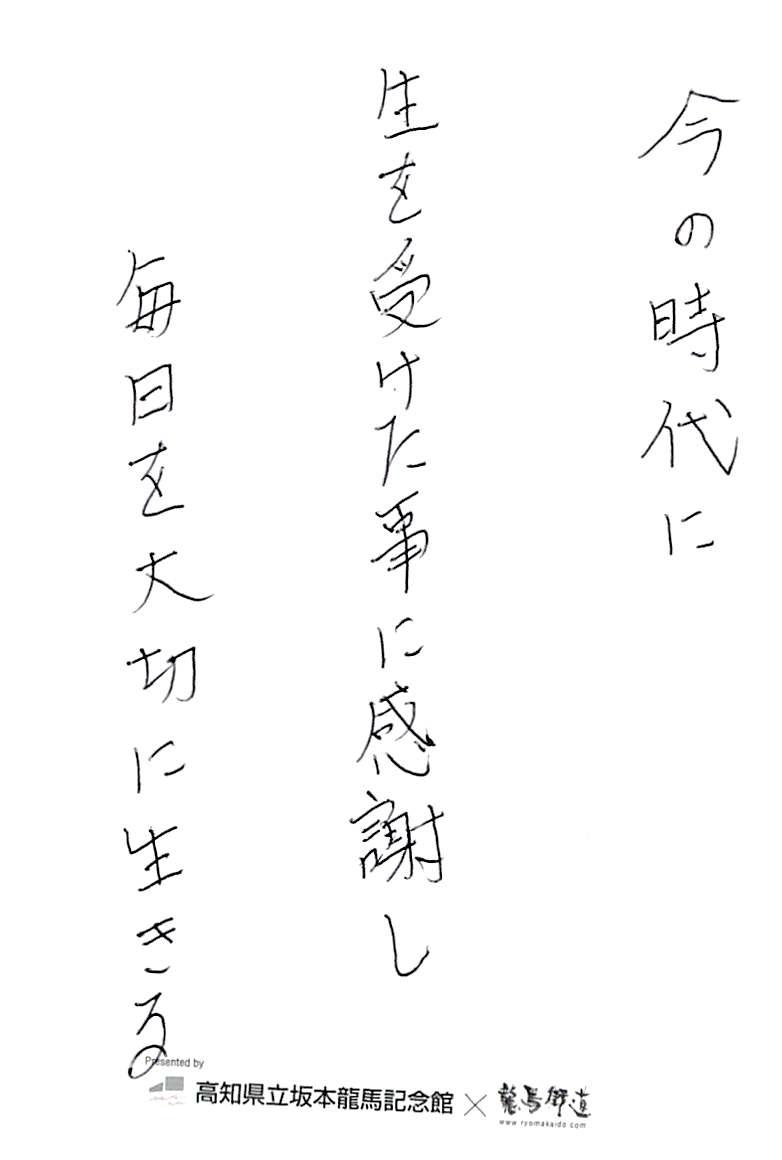 今の時代に
生を受けた事に感謝し
毎日を大切に生きる
Presented by
高知県立坂本龍馬記念館 × 龍馬街道
www.ryomakaido.com